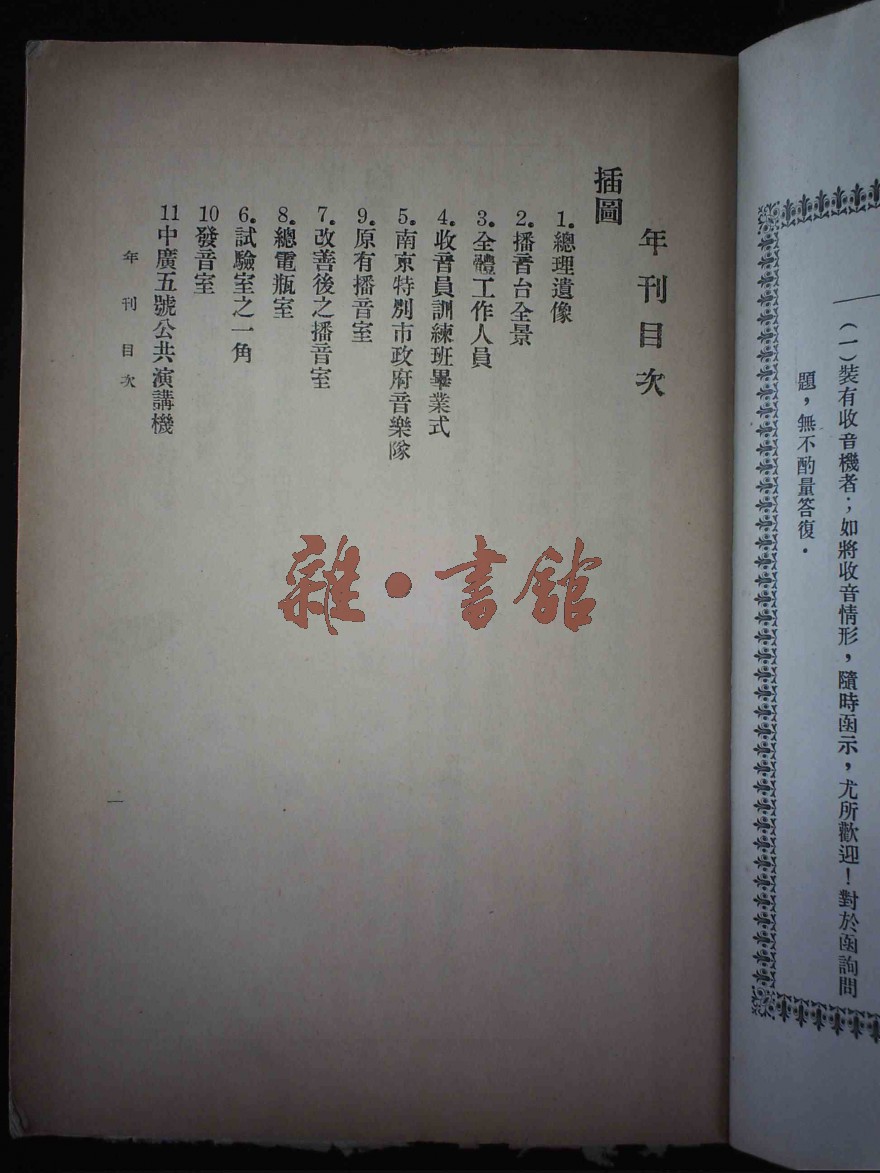 (一)裝有收音機者;如將收音情形,隨時函示,尤所歡迎!對於函詢問
題,無不酌量答復.
年刊目次
插圖
1.總理遺像
2.播音台全景
3.全體工作人員
4.收音員訓練班畢業式
5.南京特別市政府音樂隊
9.原有播音室
7.改善後之播音室
8.總電瓶室
6.試驗室之一角
10發音室
11中廣五號公共演講機
年刊目次
一
雜·書館